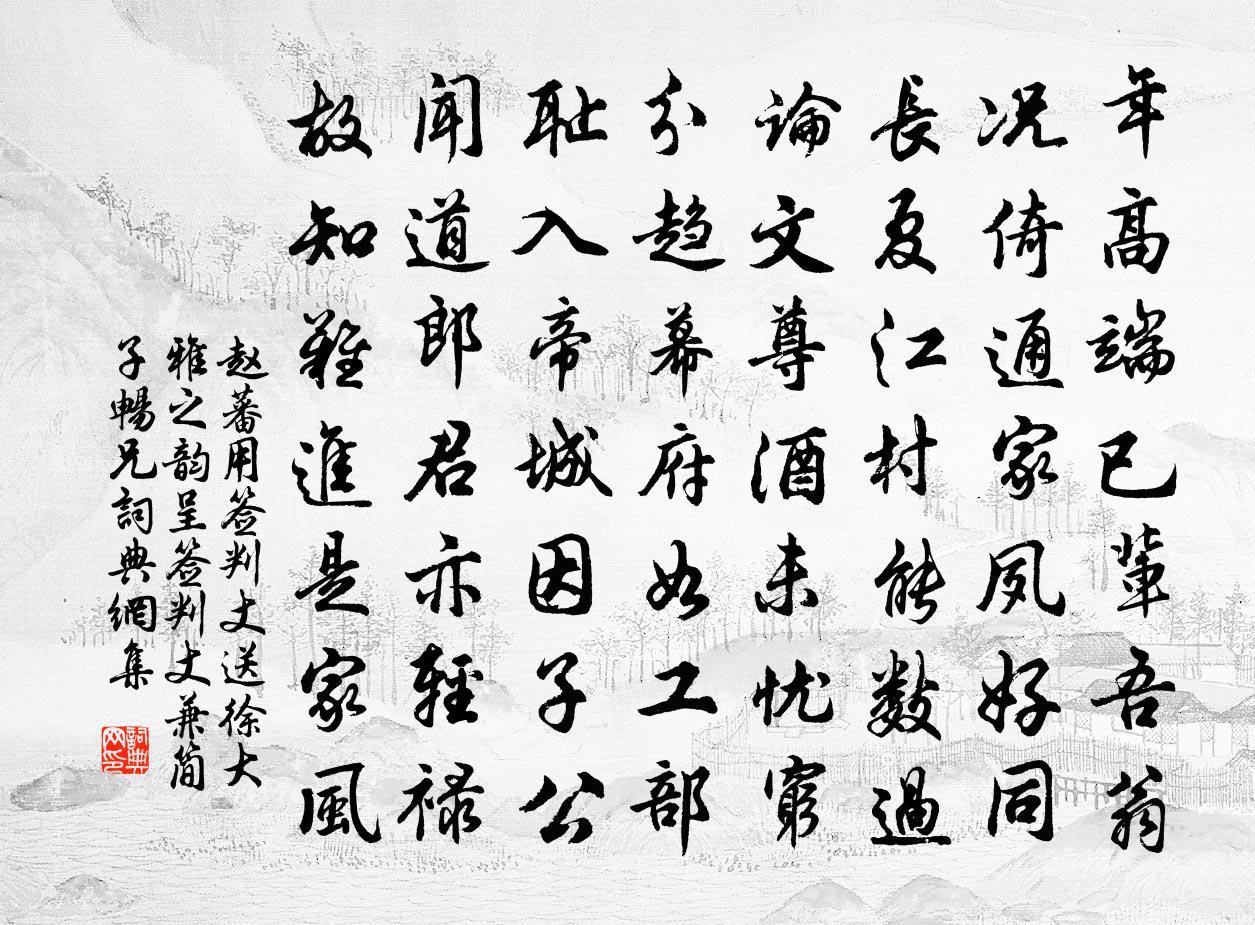 年高端已輩吾翁
况倚通家夙好同
長夏江村能數過
論文尊酒未忧窮
分趋幕府如工部
耻入帝城因子公
闻道郎君亦輕禄
故知難進是家風
赵蕃用签判丈送徐大
雅之韵呈签判丈兼简
子暢兄詞典網集
詞典网印